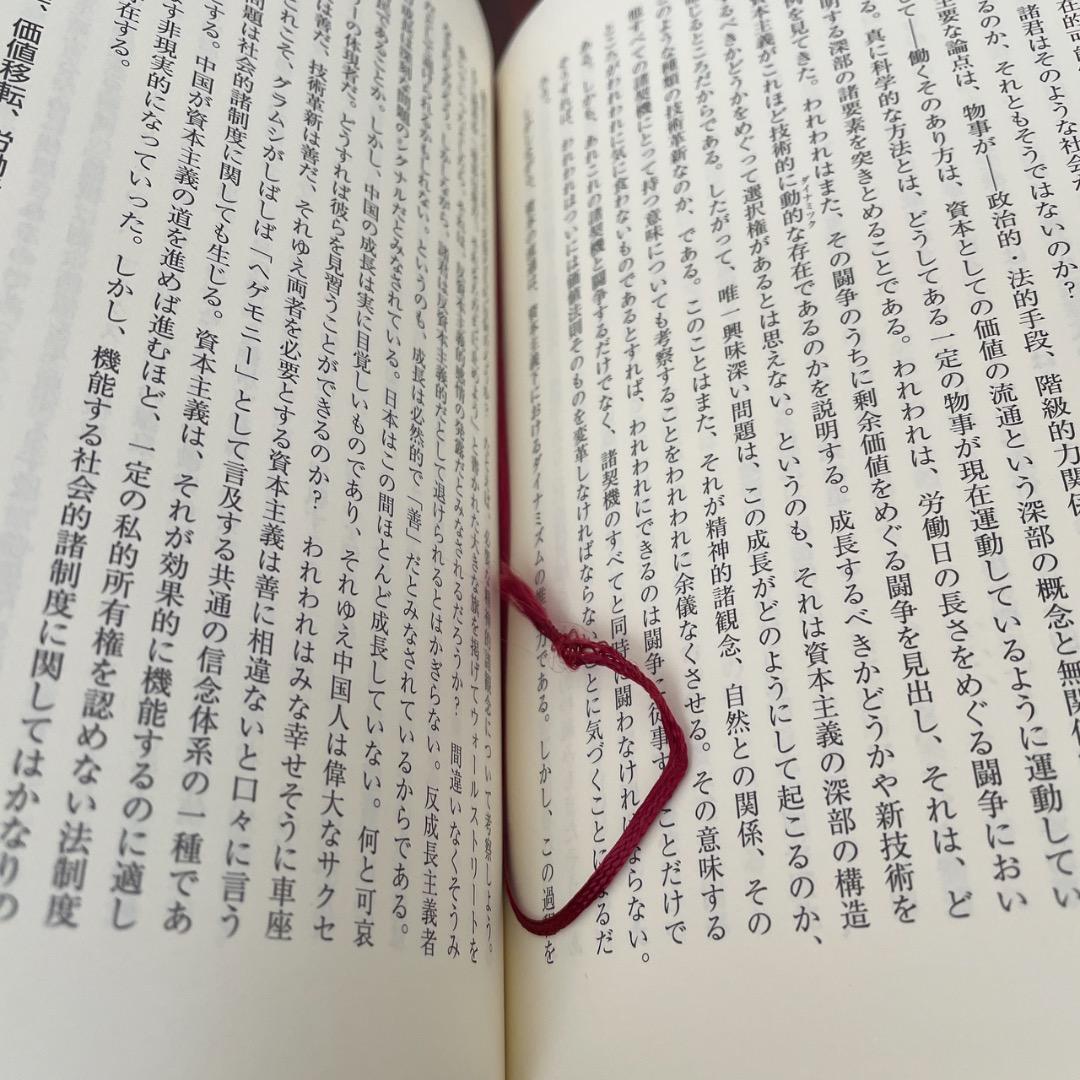 在的可能
諸君はそのような社会が
るのか、それともそうではないのか?
主要な論点は、物事が——政治的・法的手段、階級的力関係
して——働くそのあり方は、資本としての価値の流通という深部の概念と無関係
る。真に科学的な方法とは、どうしてある一定の物事が現在運動しているように運動してい
明する深部の諸要素を突きとめることである。われわれは、労働日の長さをめぐる闘争におい
例を見てきた。われわれはまた、その闘争のうちに剰余価値をめぐる闘争を見出し、それは、ど
資本主義がこれほど技術的に動的な存在であるのかを説明する。成長するべきかどうかや新技術を
ダイナミック
するべきかどうかをめぐって選択権があるとは思えない。というのも、それは資本主義の深部の構造
じるところだからである。したがって、唯一興味深い問題は、この成長がどのようにして起こるのか、
のような種類の技術革新なのか、である。このことはまた、それが精神的諸観念、自然との関係、その
他すべての諸契機にとって持つ意味についても考察することをわれわれに余儀なくさせる。その意味する
ところがわれわれに気に食わないものであるとすれば、われわれにできるのは闘争に従事することだけで
ある。しかも、あれこれの諸契機と闘争するだけでなく、諸契機のすべてと同時に闘わなければならない。
そうすれば、われわれはついには価値法則そのものを変革しなければならないことに気づくことになるだ
ろう。
資本主義下におけるダイナミズムの推 力である。しかし、この過程を
精神的諸観念について考察しよう。
と書かれた大きな旗を掲げてウォールストリートを
反資本主義的感情の発露だとみなされるだろうか? 間違いなくそうみ
諸君は反資本主義的だとして退けられるとはかぎらない。反成長主義者
として退けられるかもしれない。というのも、成長は必然的で「善」だとみなされているからである。
深刻な問題のシグナルだとみなされている。日本はこの間ほとんど成長していない。何と可哀
民であることか。しかし、中国の成長は実に目覚しいものであり、それゆえ中国人は偉大なサクセ
ーの体現者だ。どうすれば彼らを見習うことができるのか? われわれはみな幸せそうに車座
は善だ、技術革新は善だ、それゆえ両者を必要とする資本主義は善に相違ないと口々に言う
されこそ、グラムシがしばしば「ヘゲモニー」として言及する共通の信念体系の一種であ
問題は社会的諸制度に関しても生じる。資本主義は、それが効果的に機能するのに適し
する。中国が資本主義の道を進めば進むほど、一定の私的所有権を認めない法制度
す非現実的になっていった。しかし、機能する社会的諸制度に関してはかなりの
在する。
価値移転、労働